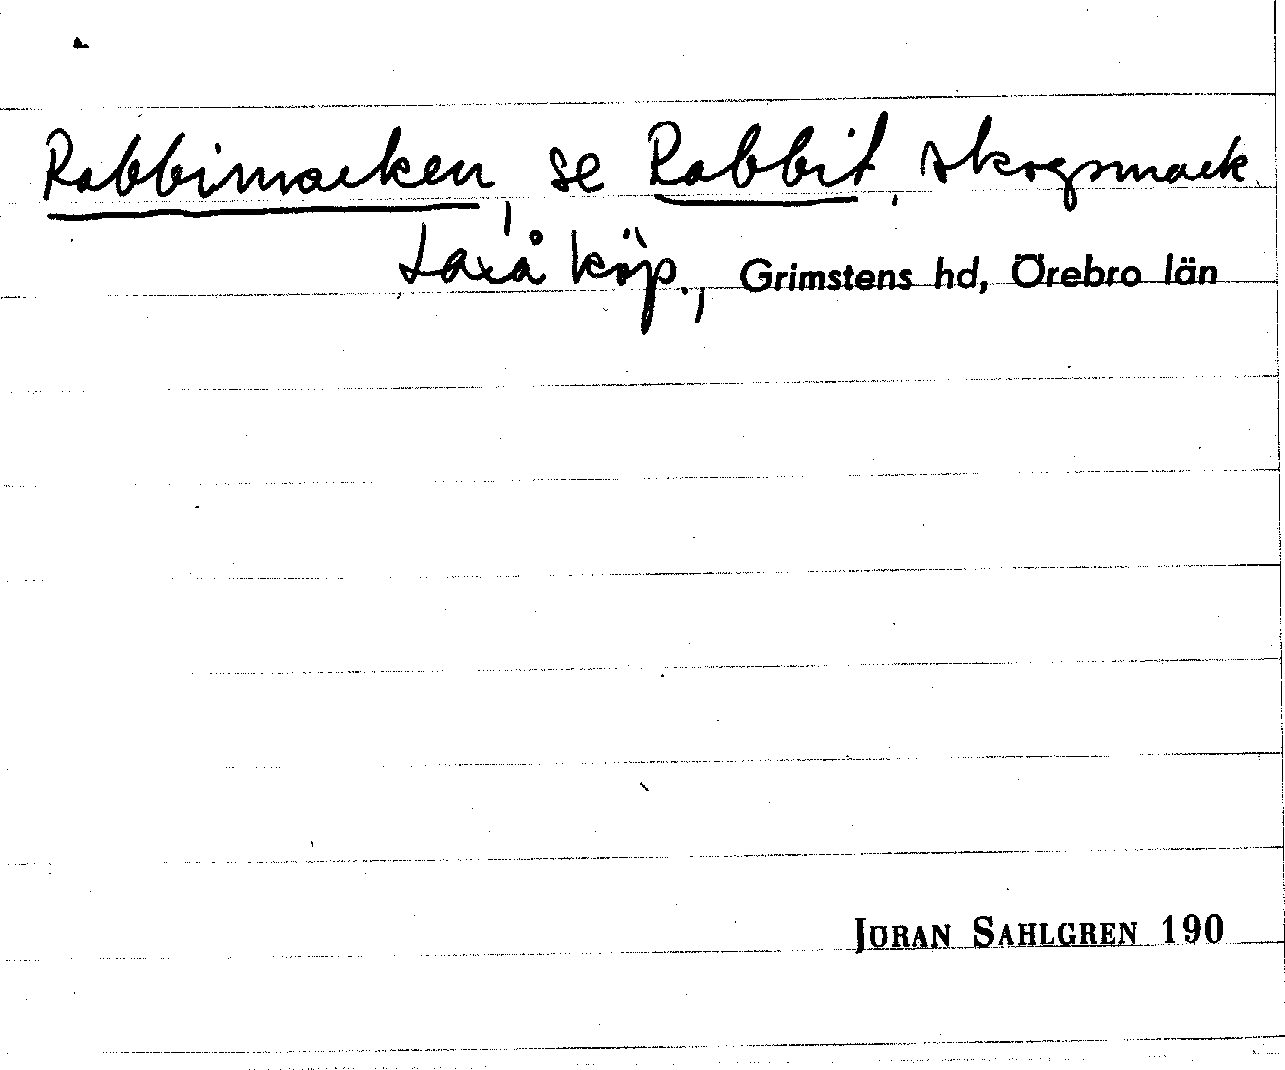 Rabbimarken, se Rabbit, skogsmark
Laxå köp., Grimstens hd, Örebro län
JÖRAN SAHLGREN 190